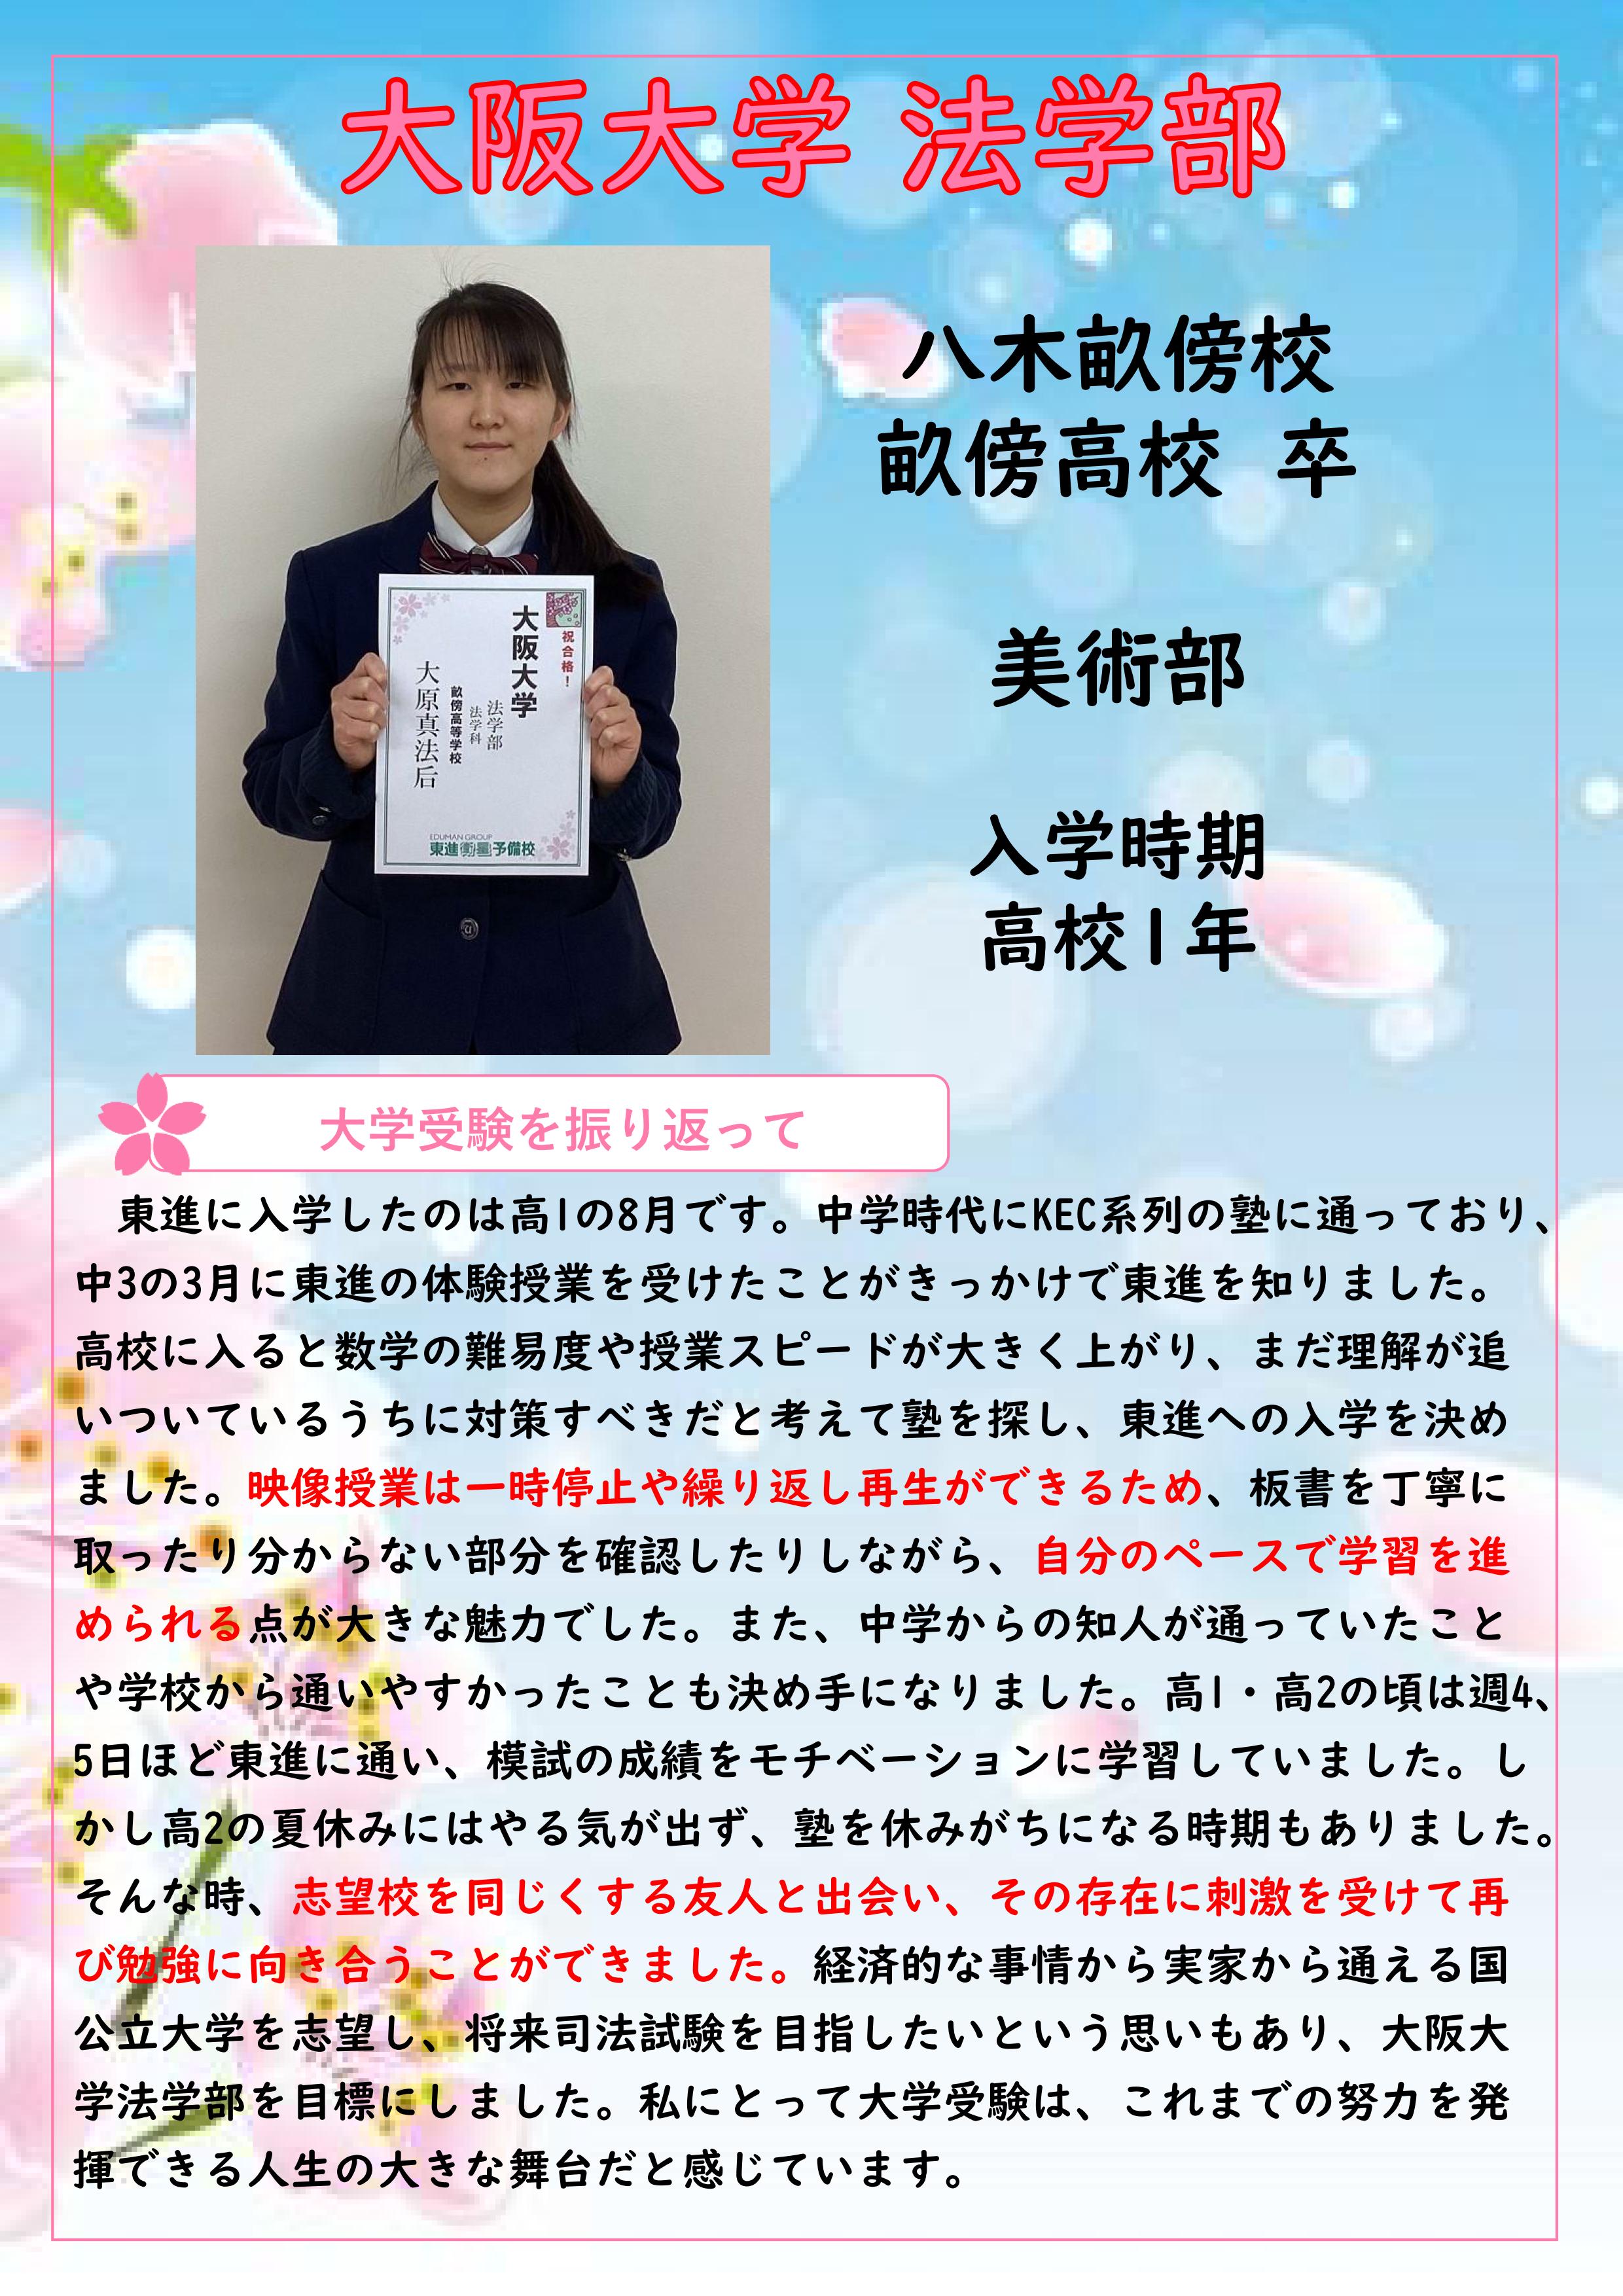 大阪大学 法学部
八木畝傍校
畝傍高校 卒
美術部
入学時期
高校1年
祝合格！
大阪大学
法学部
法学科
畝傍高等学校
大原真法后
EDUMAN GROUP
東進衛星予備校
大学受験を振り返って
東進に入学したのは高1の8月です。中学時代にKEC系列の塾に通っており、
中3の3月に東進の体験授業を受けたことがきっかけで東進を知りました。
高校に入ると数学の難易度や授業スピードが大きく上がり、まだ理解が追
いついているうちに対策すべきだと考えて塾を探し、東進への入学を決め
ました。映像授業は一時停止や繰り返し再生ができるため、板書を丁寧に
取ったり分からない部分を確認したりしながら、自分のペースで学習を進
められる点が大きな魅力でした。また、中学からの知人が通っていたこと
や学校から通いやすかったことも決め手になりました。高1・高2の頃は週4、
5日ほど東進に通い、模試の成績をモチベーションに学習していました。し
かし高2の夏休みにはやる気が出ず、塾を休みがちになる時期もありました。
そんな時、志望校を同じくする友人と出会い、その存在に刺激を受けて再
び勉強に向き合うことができました。経済的な事情から実家から通える国
公立大学を志望し、将来司法試験を目指したいという思いもあり、大阪大
学法学部を目標にしました。私にとって大学受験は、これまでの努力を発
揮できる人生の大きな舞台だと感じています。